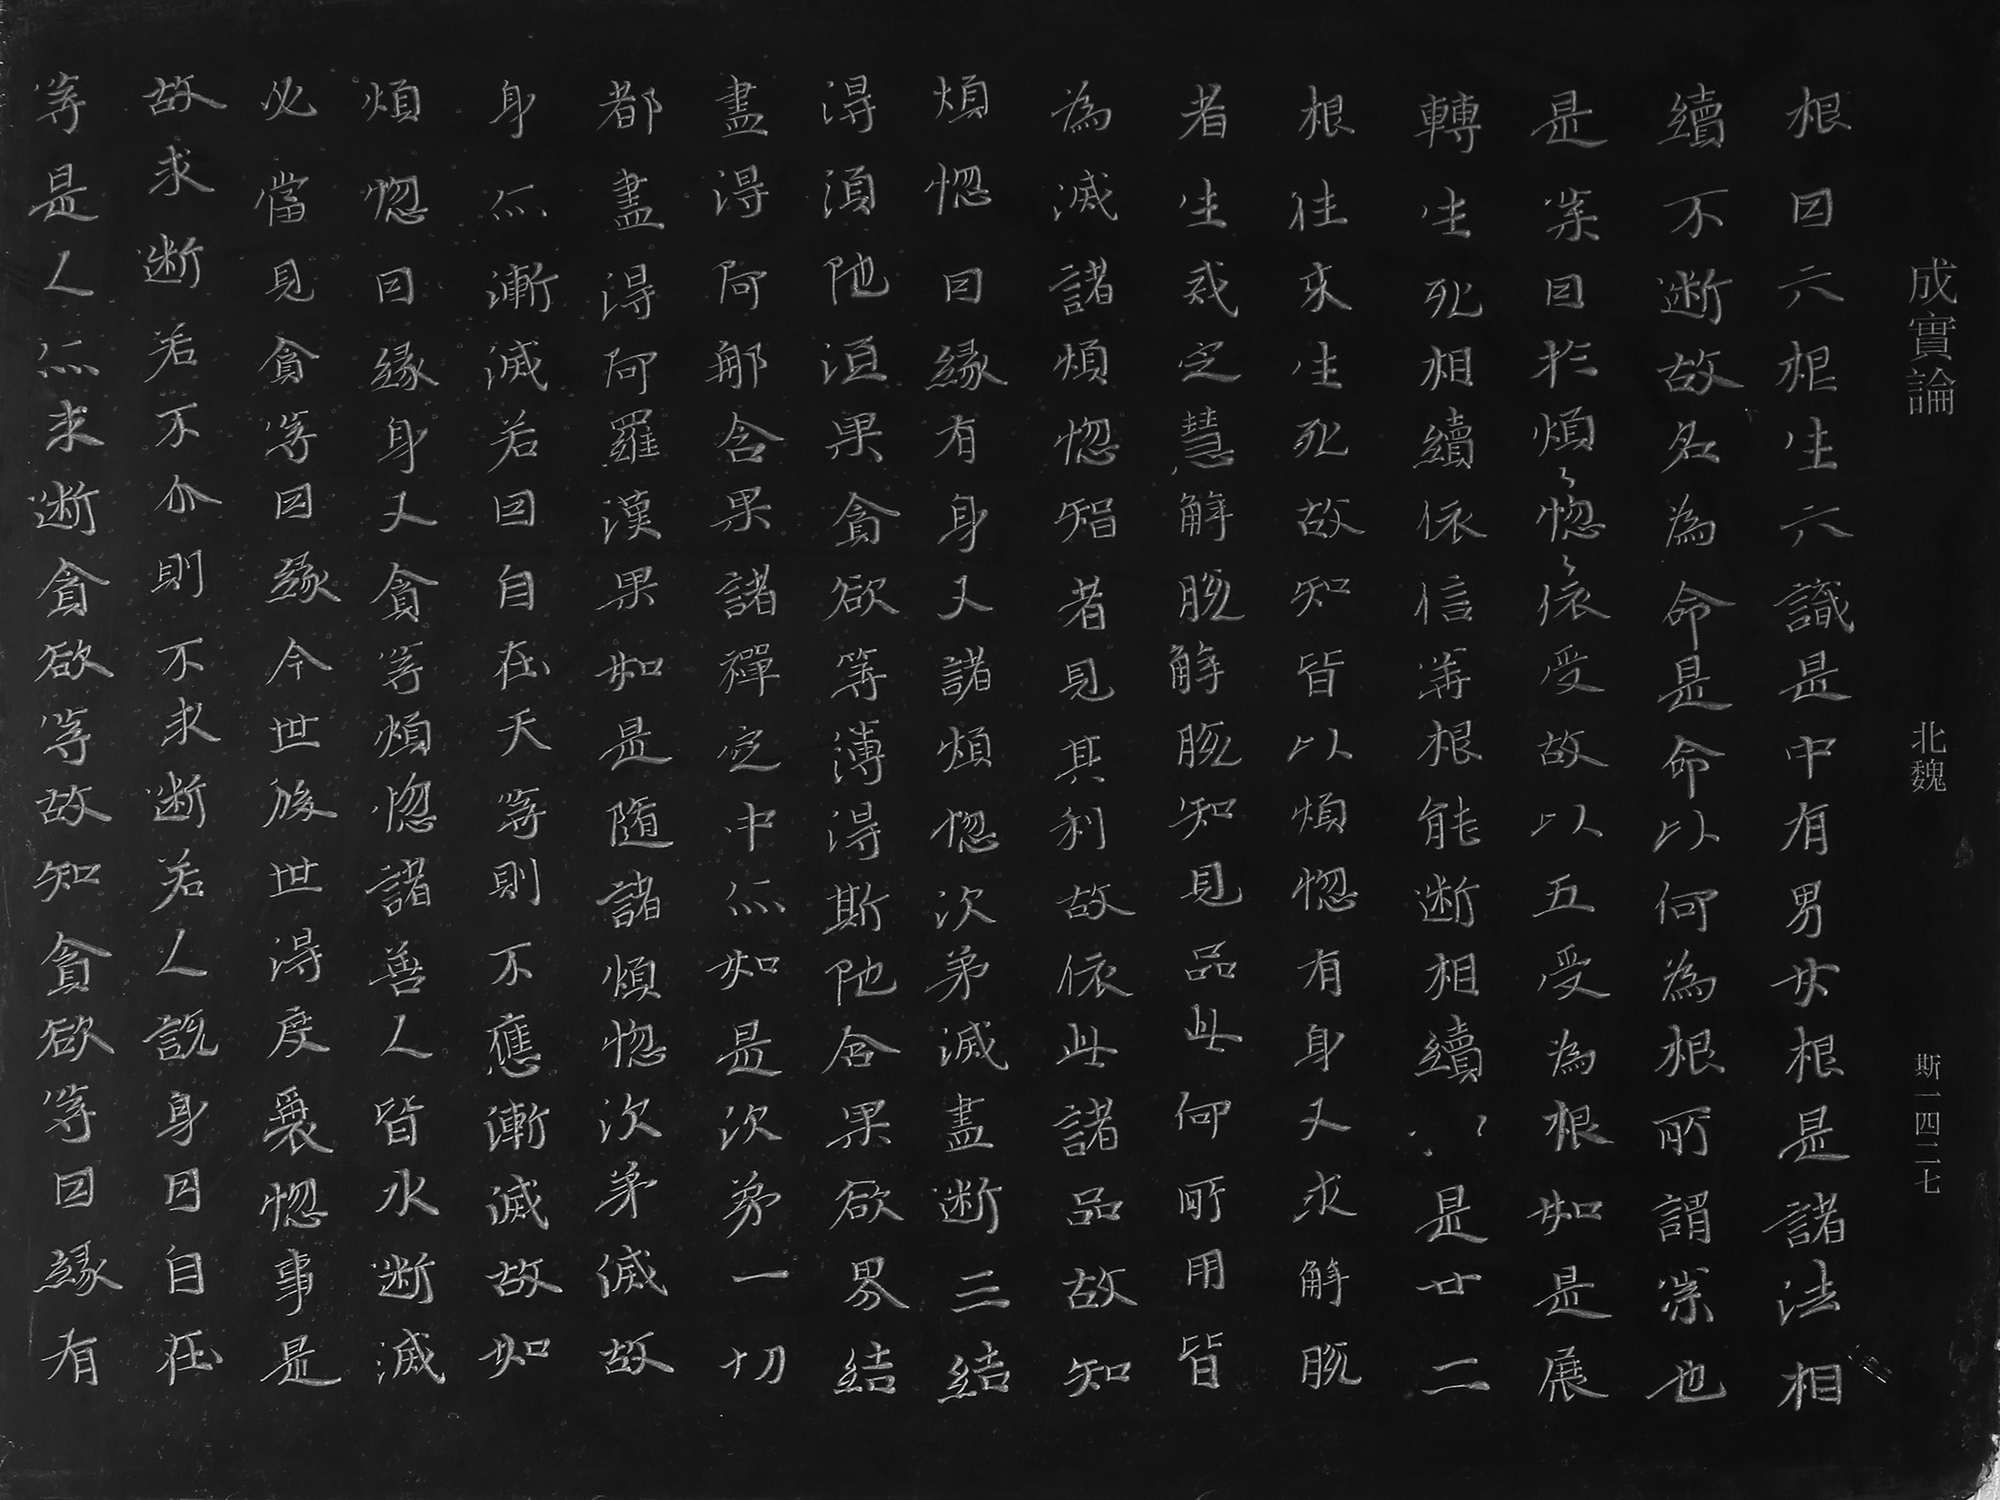 成實論 北魏 斯一四二七
根因六根生六識是中有男女根是諸法相
續不斷故名為命是命以何為根所謂業也
是業因於煩〻惱〻依受故以五受為根如是展
轉生死相續依信等根能斷相續是廿二
根往來生死故知皆以煩惱有身又求解脫
者生戒定慧解脫解脫知見品此何所用皆
為滅諸煩惱智者見其利故依此諸品故知
煩惱因緣有身又諸煩惱次第滅盡斷三結
得須陀洹果貪欲等薄得斯陀含果欲界結
盡得阿那含果諸禪定中亦如是次第一切
都盡得阿羅漢果如是隨諸煩惱次第滅故
身亦漸滅若因自在天等則不應漸滅故如
煩惱因緣身又貪等煩惱諸善人皆求斷滅
必當見貪等因緣今世後世得度衰惱事是
故求斷若不尒則不求斷若人說身因自在
等是人亦求斷貪欲等故知貪欲等因緣有